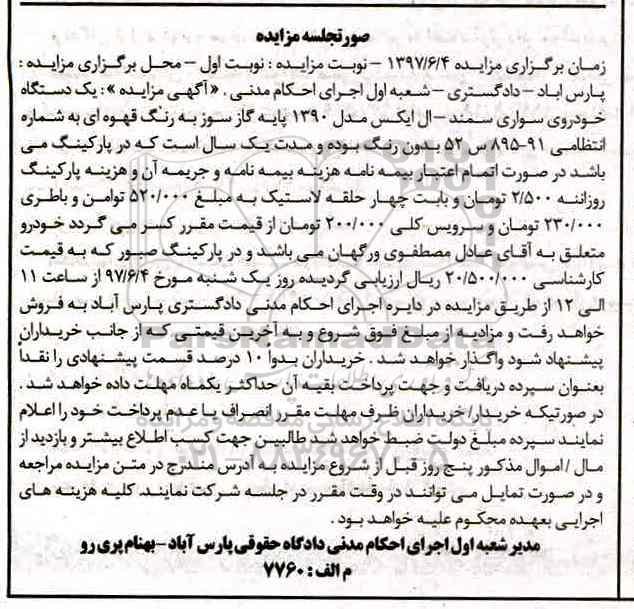 صورتجلسه مزایده
زمان برگزاری مزایده ۱۳۹۷/۶/۴ – نوبت مزایده : نوبت اول – محل برگزاری مزایده :
پارس اباد – دادگستری – شعبه اول اجرای احکام مدنی . «آگهی مزایده» : یک دستگاه
خودروی سواری سمند – ال ایکس مدل ۱۳۹۰ پایه گاز سوز به رنگ قهوه ای به شماره
انتظامی ۹۱-۸۹۵ س ۵۲ بدون رنگ بوده و مدت یک سال است که در پارکینگ می
باشد در صورت اتمام اعتبار بیمه نامه هزینه بیمه نامه و جریمه آن و هزینه پارکینگ
روزاننه ۲/۵۰۰ تومان و بابت چهار حلقه لاستیک به مبلغ ۵۲۰/۰۰۰ توامن و باطری
۲۳۰/۰۰۰ تومان و سرویس کلی ۲۰۰/۰۰۰ تومان از قیمت مقرر کسر می گردد خودرو
متعلق به آقای عادل مصطفوی ورگهان می باشد و در پارکینگ صبور که به قیمت
کارشناسی ۲۰/۵۰۰/۰۰۰ ریال ارزیابی گردیده روز یک شنبه مورخ ۹۷/۶/۴ از ساعت ۱۱
الی ۱۲ از طریق مزایده در دایره اجرای احکام مدنی دادگستری پارس آباد به فروش
خواهد رفت و مزادیه از مبلغ فوق شروع و به آخرین قیمتی که از جانب خریداران
پیشنهاد شود واگذار خواهد شد . خریداران بدوا ۱۰ درصد قسمت پیشنهادی را نقداً
بعنوان سپرده دریافت و جهت پرداخت بقیه آن حداکثر یکماه مهلت داده خواهد شد .
در صورتیکه خریدار/ خریداران ظرف مهلت مقرر انصراف یا عدم پرداخت خود را اعلام
نمایند سپرده مبلغ دولت ضبط خواهد شد طالبین جهت کسب اطلاع بیشتر و بازدید از
مال / اموال مذکور پنج روز قبل از شروع مزایده به آدرس مندرج در متن مزایده مراجعه
و در صورت تمایل می توانند در وقت مقرر در جلسه شرکت نمایند. کلیه هزینه های
اجرایی بعهده محکوم علیه خواهد بود .
مدیر شعبه اول اجرای احکام مدنی دادگاه حقوقی پارس آباد – بهنام پری رو
م الف : ۷۷۶۰